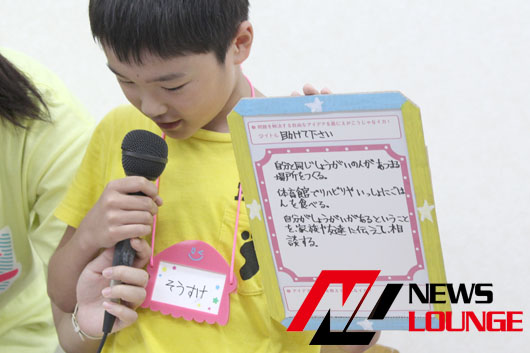 タイトル 助けて下さい
自分と同じしょうがいの人があつまる
場所をつくる。
体育館でリハビリやいっしょにごは
んを食べる。
自分がしょうがいがあるということ
を家族や友達に伝えて相
談する。
そうすけ
NEWS
LOUNGE